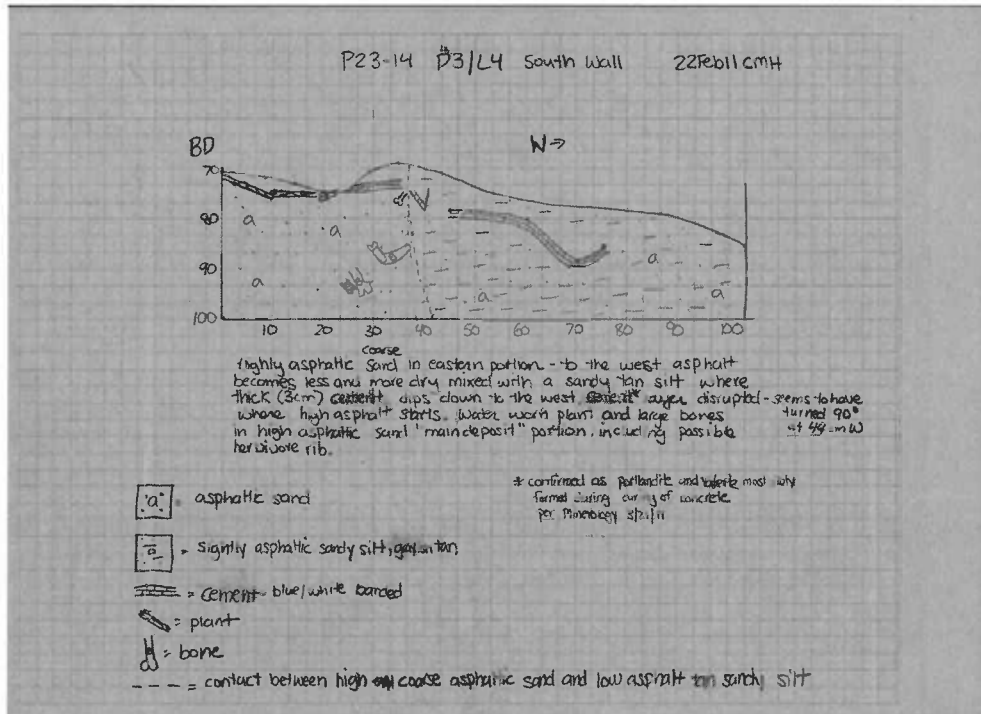 P23-14 D3/L4 South Wall 22Feb11 CMH
BD W→
70
80
90
100
a a a a a a a
10 20 30 40 50 60 70 80 90 100
coarse
Highly asphaltic sand in eastern portion - to the west asphalt
becomes less and more dry mixed with a sandy tan silt where
thick (3cm) cement dips down to the west. layer disrupted - seems to have
where high asphalt starts. Water worn plant and large bones turned 90°
in high asphaltic sand "main deposit" portion, including possible at W
herbivore rib.
* confirmed as portlandite and most likely
formed during curing of concrete
per Minerology
"a" = asphaltic sand
a = slightly asphaltic sandy silt, tan
= cement - blue/white banded
= plant
= bone
---- = contact between high coarse asphaltic sand and low asphalt tan sandy silt